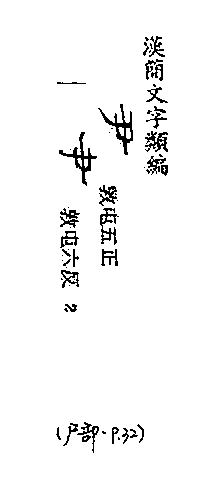 漢簡文字類編
尹
敦屯五正
一
尹
敦屯六反 2
(尸部·P.32)